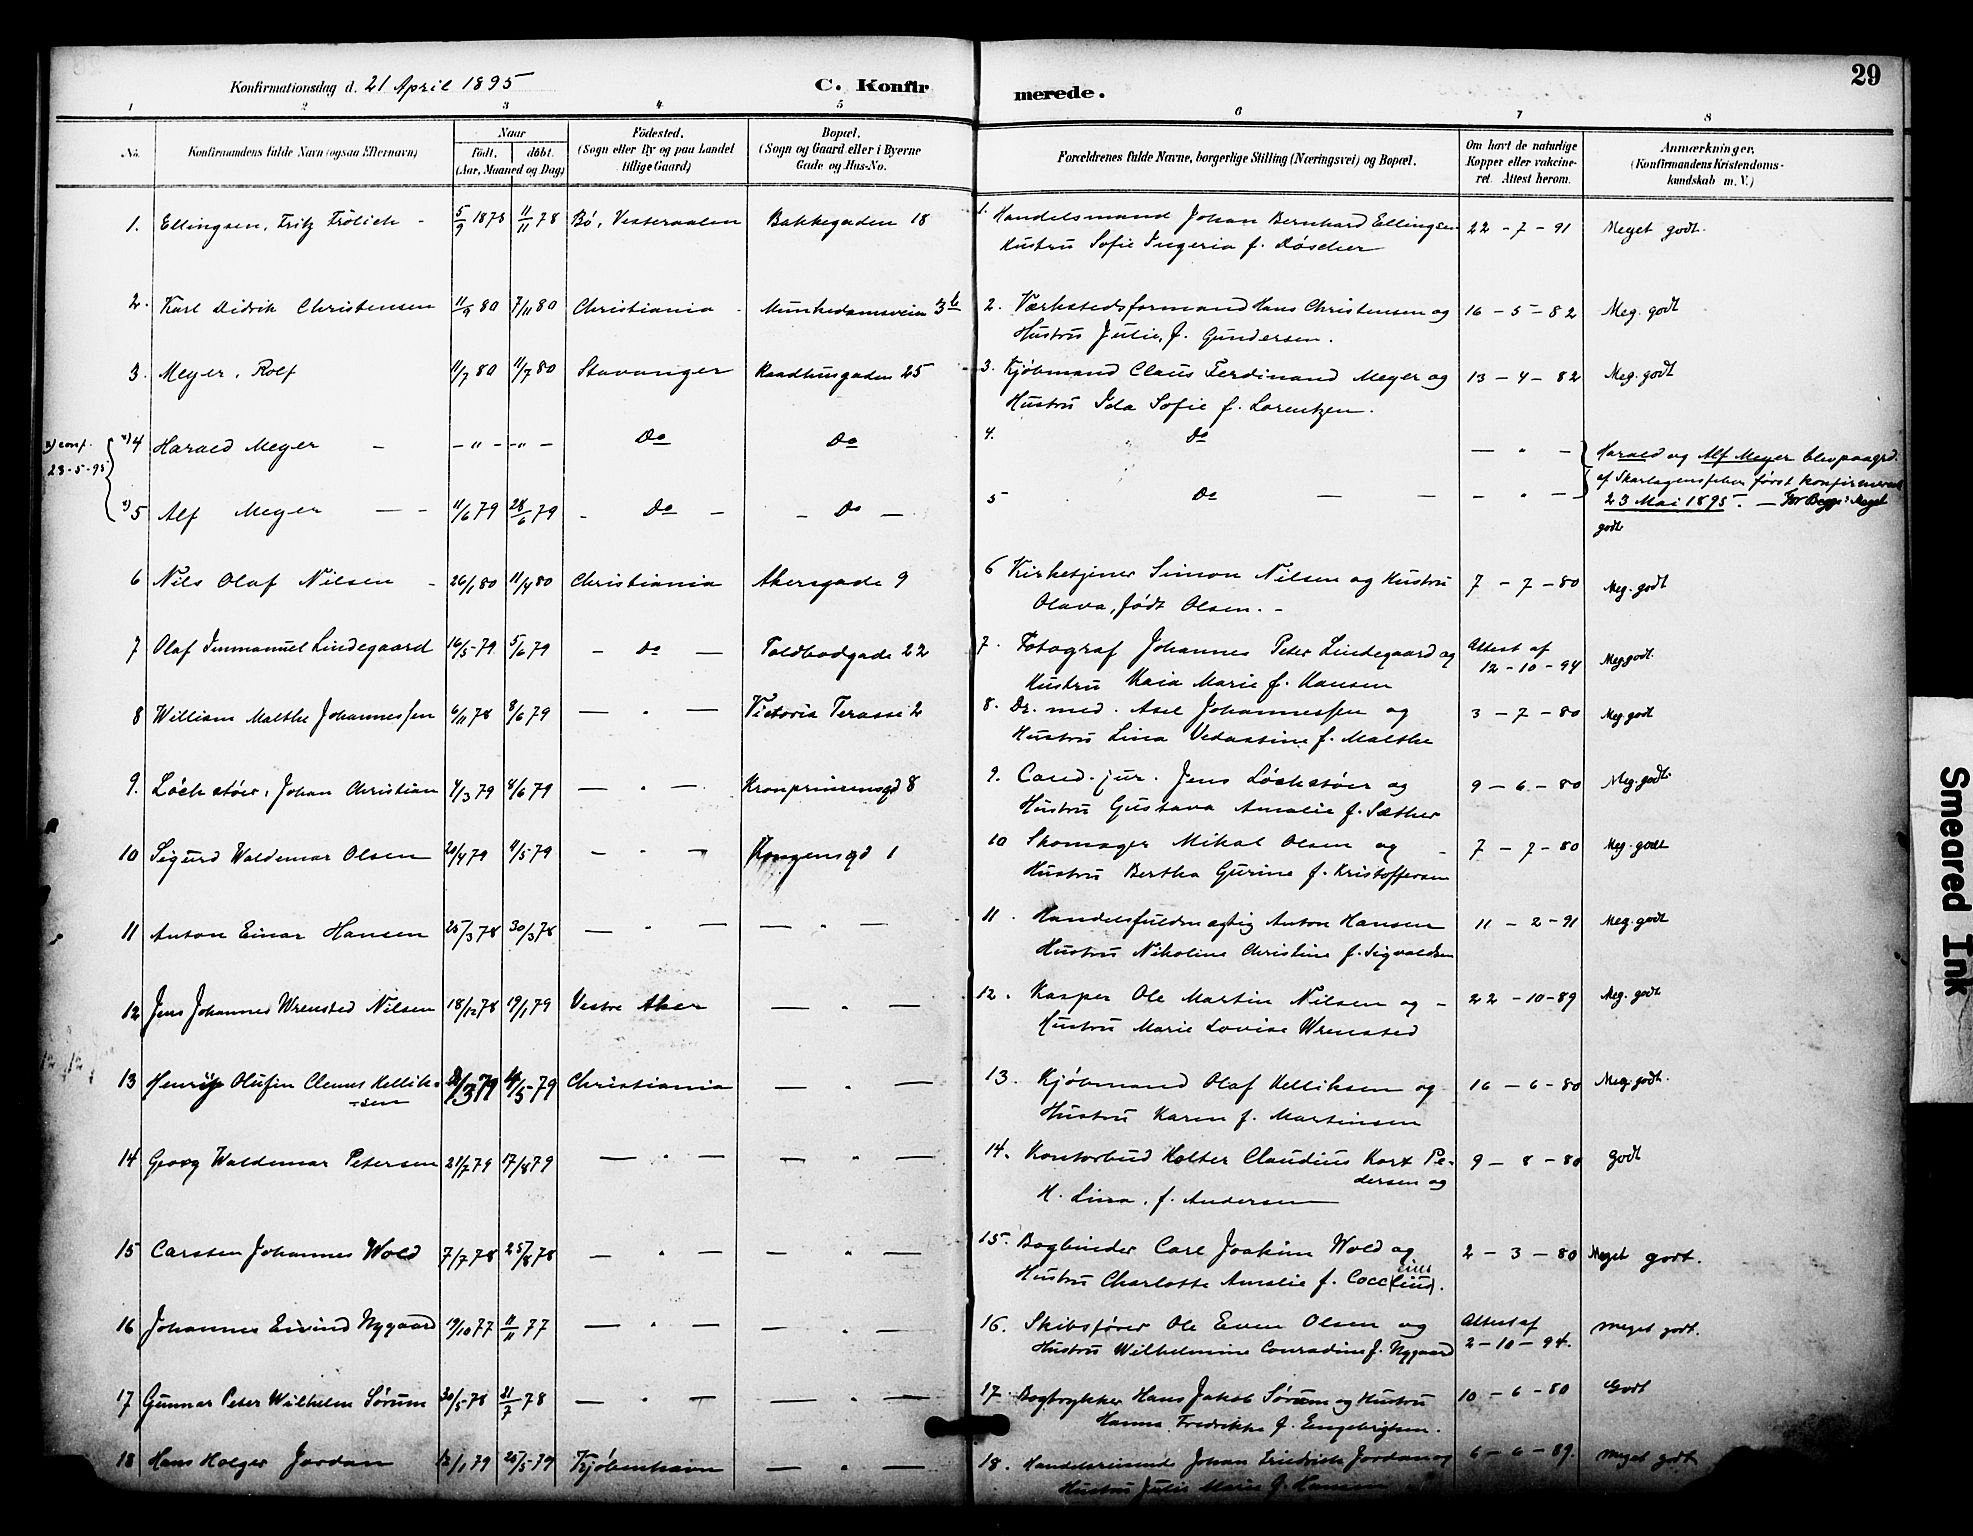 Konfirmationsdag d. 21 April 1895
C. Konfirmerede.
29
1 2 3 4 5 6 7 8
No. Konfirmandens fulde Navn (ogsaa Efternavn) Naar Födt. döbt. (Aar, Maaned og Dag) Födested. (Sogn eller By og paa Landet tillige Gaard) Bopæl. (Sogn og Gaard eller i Byerne Gade og Hus-No. Forældrenes fulde Navne, borgerlige Stilling (Næringsvei) og Bopæl. Om havt de naturlige Kopper eller vakcineret. Attest herom. Anmærkninger. (Konfirmandens Kristendomskundskab m. V.)
1. Ellingsen, Fritz Frölich - 5/9 1878 11/11 78 Bö, Vesteraalen Bakkegaden 18 1. Handelsmand Johan Bernhard Ellingsen 22-7-91 Meget godt.
Hustru Sofie Ingeria f. Döscher
2. Karl Didrik Christensen 11/9 80 7/11 80 Christiania Munkedamsveien 3b 2. Værkstedsformand Hans Christensen og 16-5-82 Meg. godt
Hustru Julie, f. Gundersen.
3. Meyer, Rolf 11/7 80 11/7 80 Stavanger Raadhusgaden 25 3. Kjöbmand Claus Ferdinand Meyer og 13-4-82 Meg. godt
Hustru Ida Sofie f. Lorentzen.
x) conf. 23-5-95 x) 4 Harald Meyer - - " - - " - Do Do 4. Do - " - Harald og Alf Meyer blev paagrd.
af Skarlagensfeber först konfirmeret
x) 5 Alf Meyer - - 11/6 79 28/6 79 - Do - - Do - 5 Do - - - " - 23 Mai 1895. - For Begge: Meget
godt
6 Nils Olaf Nilsen - 26/1 80 11/4 80 Christiania Akersgade 9 6 Kirketjener Simon Nilsen og Hustru 7-7-80 Meg. godt
Olava, födt Olsen. -
7 Olaf Immanuel Lindegaard 16/5 79 5/6 79 - Do - Toldbodgade 22 7. Fotograf Johannes Peter Lindegaard og Attest af 12-10-94 Meg. godt.
Hustru Kaia Marie f. Hansen
8 William Malthe Johannessen 6/11 78 8/6 79 - " - Victoria Terasse 2 8. Dr. med. Axel Johannessen og 3-7-80 Meg. godt
Hustru Lina Vedastine f. Malthe
9. Löchstöer, Johan Christian 4/3 79 8/6 79 - " - Kronprinsensgd 8 9. Cand. jur. Jens Löchstöer og 9-6-80 Meg. godt.
Hustru Gustava Amalie f. Sæther
10 Sigurd Waldemar Olsen 20/4 79 4/5 79 - " - Kongensgd 1 10 Skomager Mikal Olsen og - 7-7-80 Meg. godt
Hustru Bertha Gurine f. Kristoffersen
11 Anton Einar Hansen 25/3 78 30/3 78 - " - - " - 11. Handelsfuldmægtig Anton Hansen 11-2-91 Meg. godt
Hustru Nikoline Christine f. Sigvaldsen
12 Jens Johannes Wrensted Nilsen 18/12 78 19/1 79 Vestre Aker - " - 12. Kasper Ole Martin Nilsen og - 22-10-89 Meg. godt
Hustru Marie Lovise Wrensted
13 Olufin Clemes Kellik- 79 79 Christiania - " - 13. Kjöbmand Olaf Kelliksen og 16-6-80 Meg. godt.
-sen Hustru Karen f. Martinsen
14 Georg Waldemar Petersen 21/7 79 17/8 79 - " - - " - 14. Kontorbud Holter Claudius Kort Pe- 9-8-80 godt
dersen og
H. Lina, f. Andersen
15 Carsten Johannes Wold 7/7 78 25/8 78 - " - - " - 15. Bogbinder Carl Joakim Wold og 2-3-80 Meget godt.
Hustru Charlotte Amalie f. Coccejus.
16 Johannes Eivind Nygaard 19/10 77 11/11 77 - " - - " - 16. Skibsförer Ole Even Olsen og Attest af 2-10-94. meget godt.
Hustru Wilhelmine Conradine f. Nygaard
17 Gunnar Peter Wilhelm Sörum 20/5 78 21/7 78 - " - - " - 17. Bogtrykker Hans Jakob Sörum og Hustru 10-6-80 Godt
Hanna Fredrikke f. Engebrigtsen.
18 Hans Holger Jordan 12/1 79 25/5 79 Kjöbenhavn - " - 18. Handelsreisende Johan Friedrich Jordan og 6-6-89. meget godt
Hustru Julie Marie f. Hansen
Smeared Ink